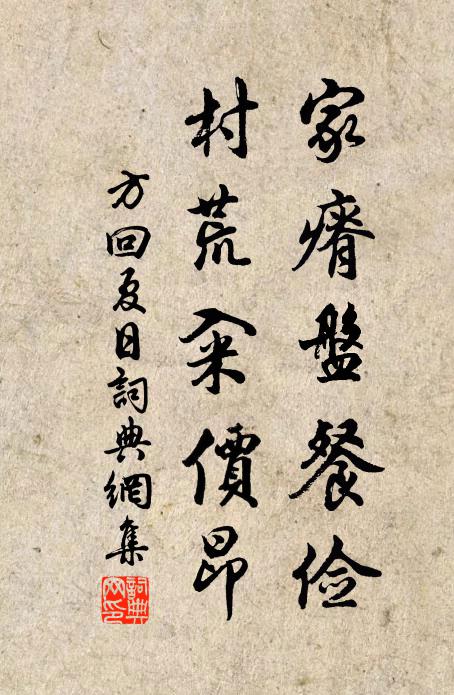 家瘠盤餐俭
村荒籴價昂
方回夏日詞典網集
詞典网印